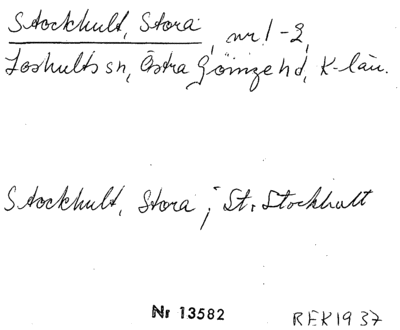 Stockhult, Stora, nr 1-2,
Loshults sn, Östra Göinge hd, K-län.
Stockhult, Stora ; St. Stockhult
Nr 13582
REK1937